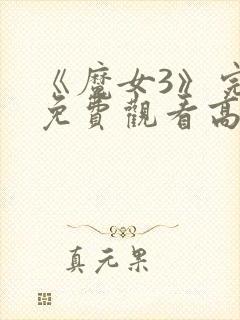 《魔女3》完
免費觀看高
真元果